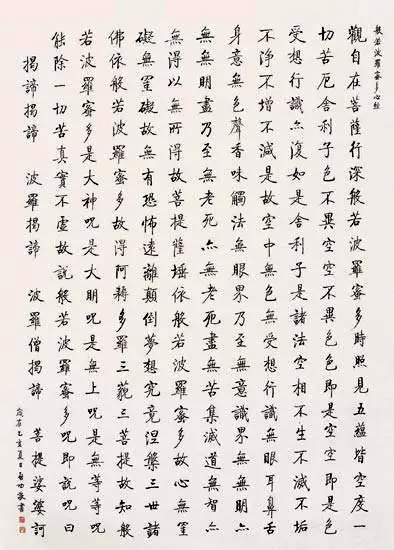 般若波羅蜜多心經
觀自在菩薩行深般若波羅蜜多時照見五蘊皆空度一
切苦厄舍利子色不異空空不異色色即是空空即是色
受想行識亦復如是舍利子是諸法空相不生不滅不垢
不淨不增不減是故空中無色無受想行識無眼耳鼻舌
身意無色聲香味觸法無眼界乃至無意識界無無明亦
無無明盡乃至無老死亦無老死盡無苦集滅道無智亦
無得以無所得故菩提薩埵依般若波羅蜜多故心無罣
礙無罣礙故無有恐怖遠離顛倒夢想究竟涅槃三世諸
佛依般若波羅蜜多故得阿耨多羅三藐三菩提故知般
若波羅蜜多是大神呪是大明呪是無上呪是無等等呪
能除一切苦真實不虛故說般若波羅蜜多呪即說呪曰
揭諦揭諦 波羅揭諦 波羅僧揭諦 菩提娑婆訶
歲在乙亥夏日啟功敬書